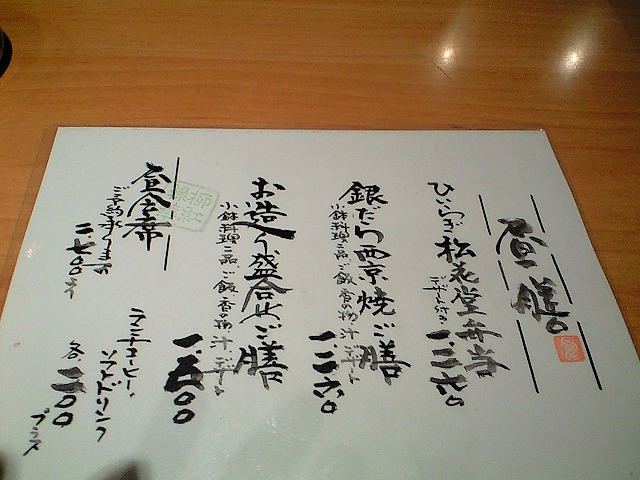 昼膳
ひいらぎ松花堂弁当
デザート付き
一、二六〇
銀だら西京焼ご膳
小鉢料理二品 ご飯 香の物 汁 デザート
一、二六〇
お造り盛合せご膳
小鉢料理二品 ご飯 香の物 汁 デザート
一、五〇〇
昼会席
ご予約承ります
二、七〇〇より
ランチコーヒー、
ソフトドリンク
各、二〇〇
プラス